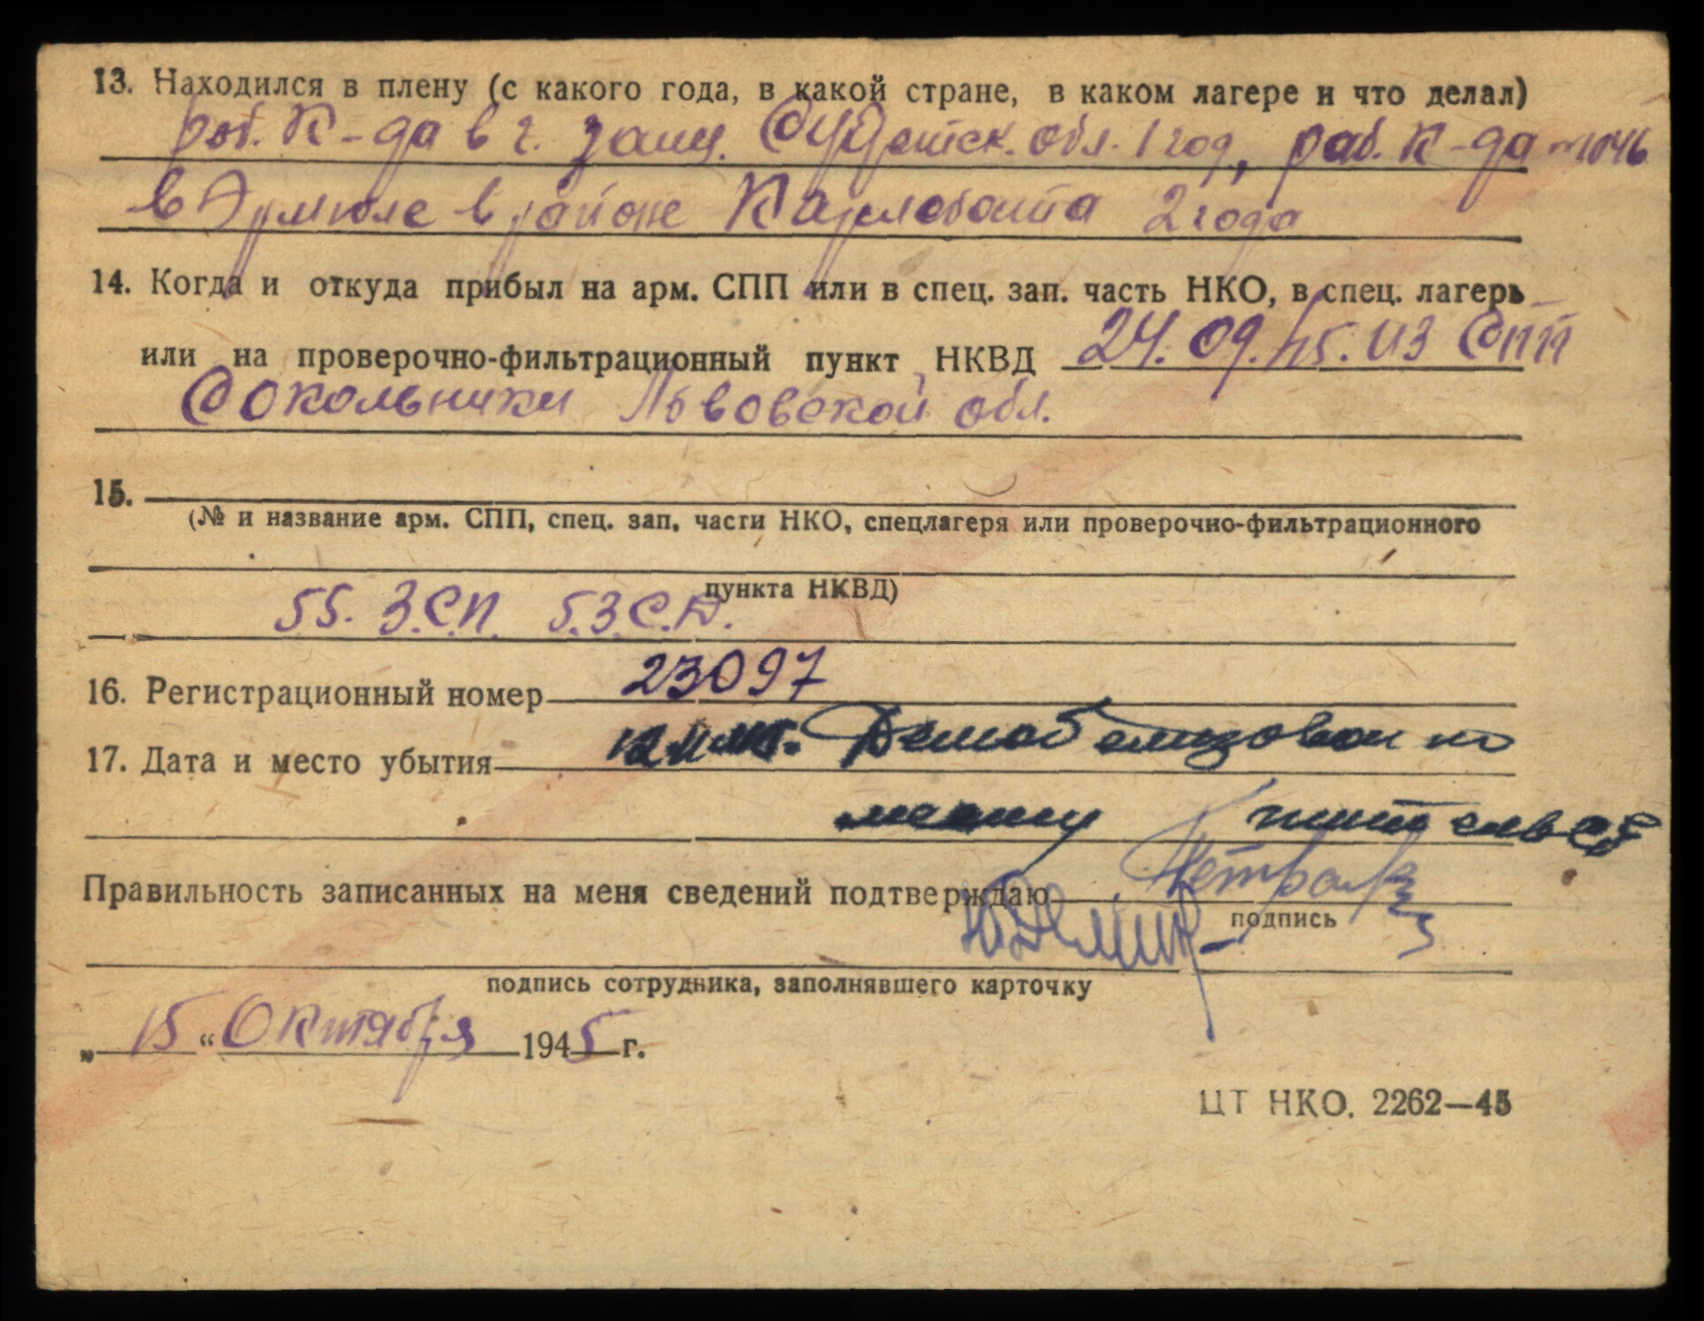 13. Находился в плену (с какого года, в какой стране, в каком лагере и что делал)
раб. к-да в г. Заац. Судетск. обл. 1 год, раб. к-да
в районе Карлсбата 2 года
14. Когда и откуда прибыл на арм. СПП или в спец. зап. часть НКО, в спец. лагерь
или на проверочно-фильтрационный пункт НКВД 24.09.45. из СПП
Сокольники Львовской обл.
15.
(№ и название арм. СПП, спец. зап. части НКО, спецлагеря или проверочно-фильтрационного
пункта НКВД)
55. З.С.П. 5.З.С.Д.
16. Регистрационный номер 23097
17. Дата и место убытия Демобелизован по
месту жительст
Правильность записанных на меня сведений подтверждаю
подпись
подпись сотрудника, заполнявшего карточку
„15“ Октября 1945 г.
ЦТ НКО. 2262—45